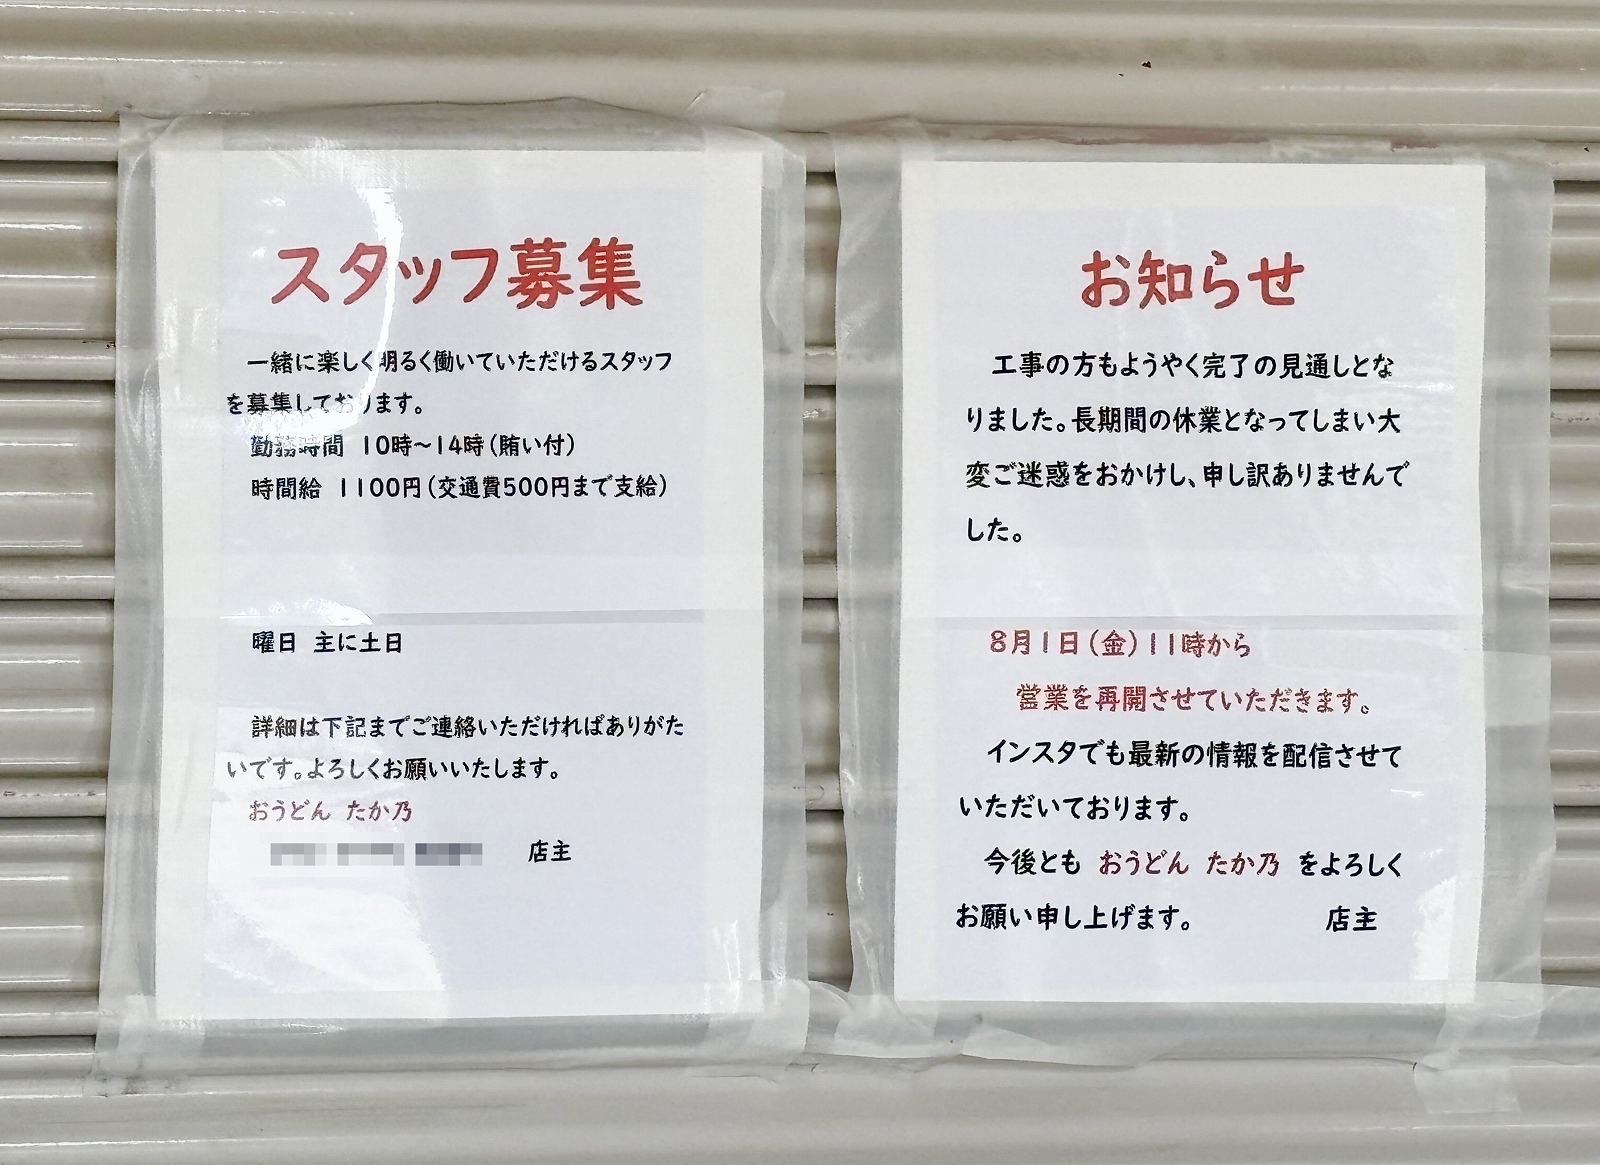 スタッフ募集
一緒に楽しく明るく働いていただけるスタッフ
を募集しております。
勤務時間 10時～14時(賄い付)
時間給 1100円(交通費500円まで支給)
曜日 主に土日
詳細は下記までご連絡いただければありがた
いです。よろしくお願いいたします。
おうどん たか乃
店主
お知らせ
工事の方もようやく完了の見通しとな
りました。長期間の休業となってしまい大
変ご迷惑をおかけし、申し訳ありませんで
した。
8月1日(金)11時から
営業を再開させていただきます。
インスタでも最新の情報を配信させて
いただいております。
今後とも おうどん たか乃 をよろしく
お願い申し上げます。 店主